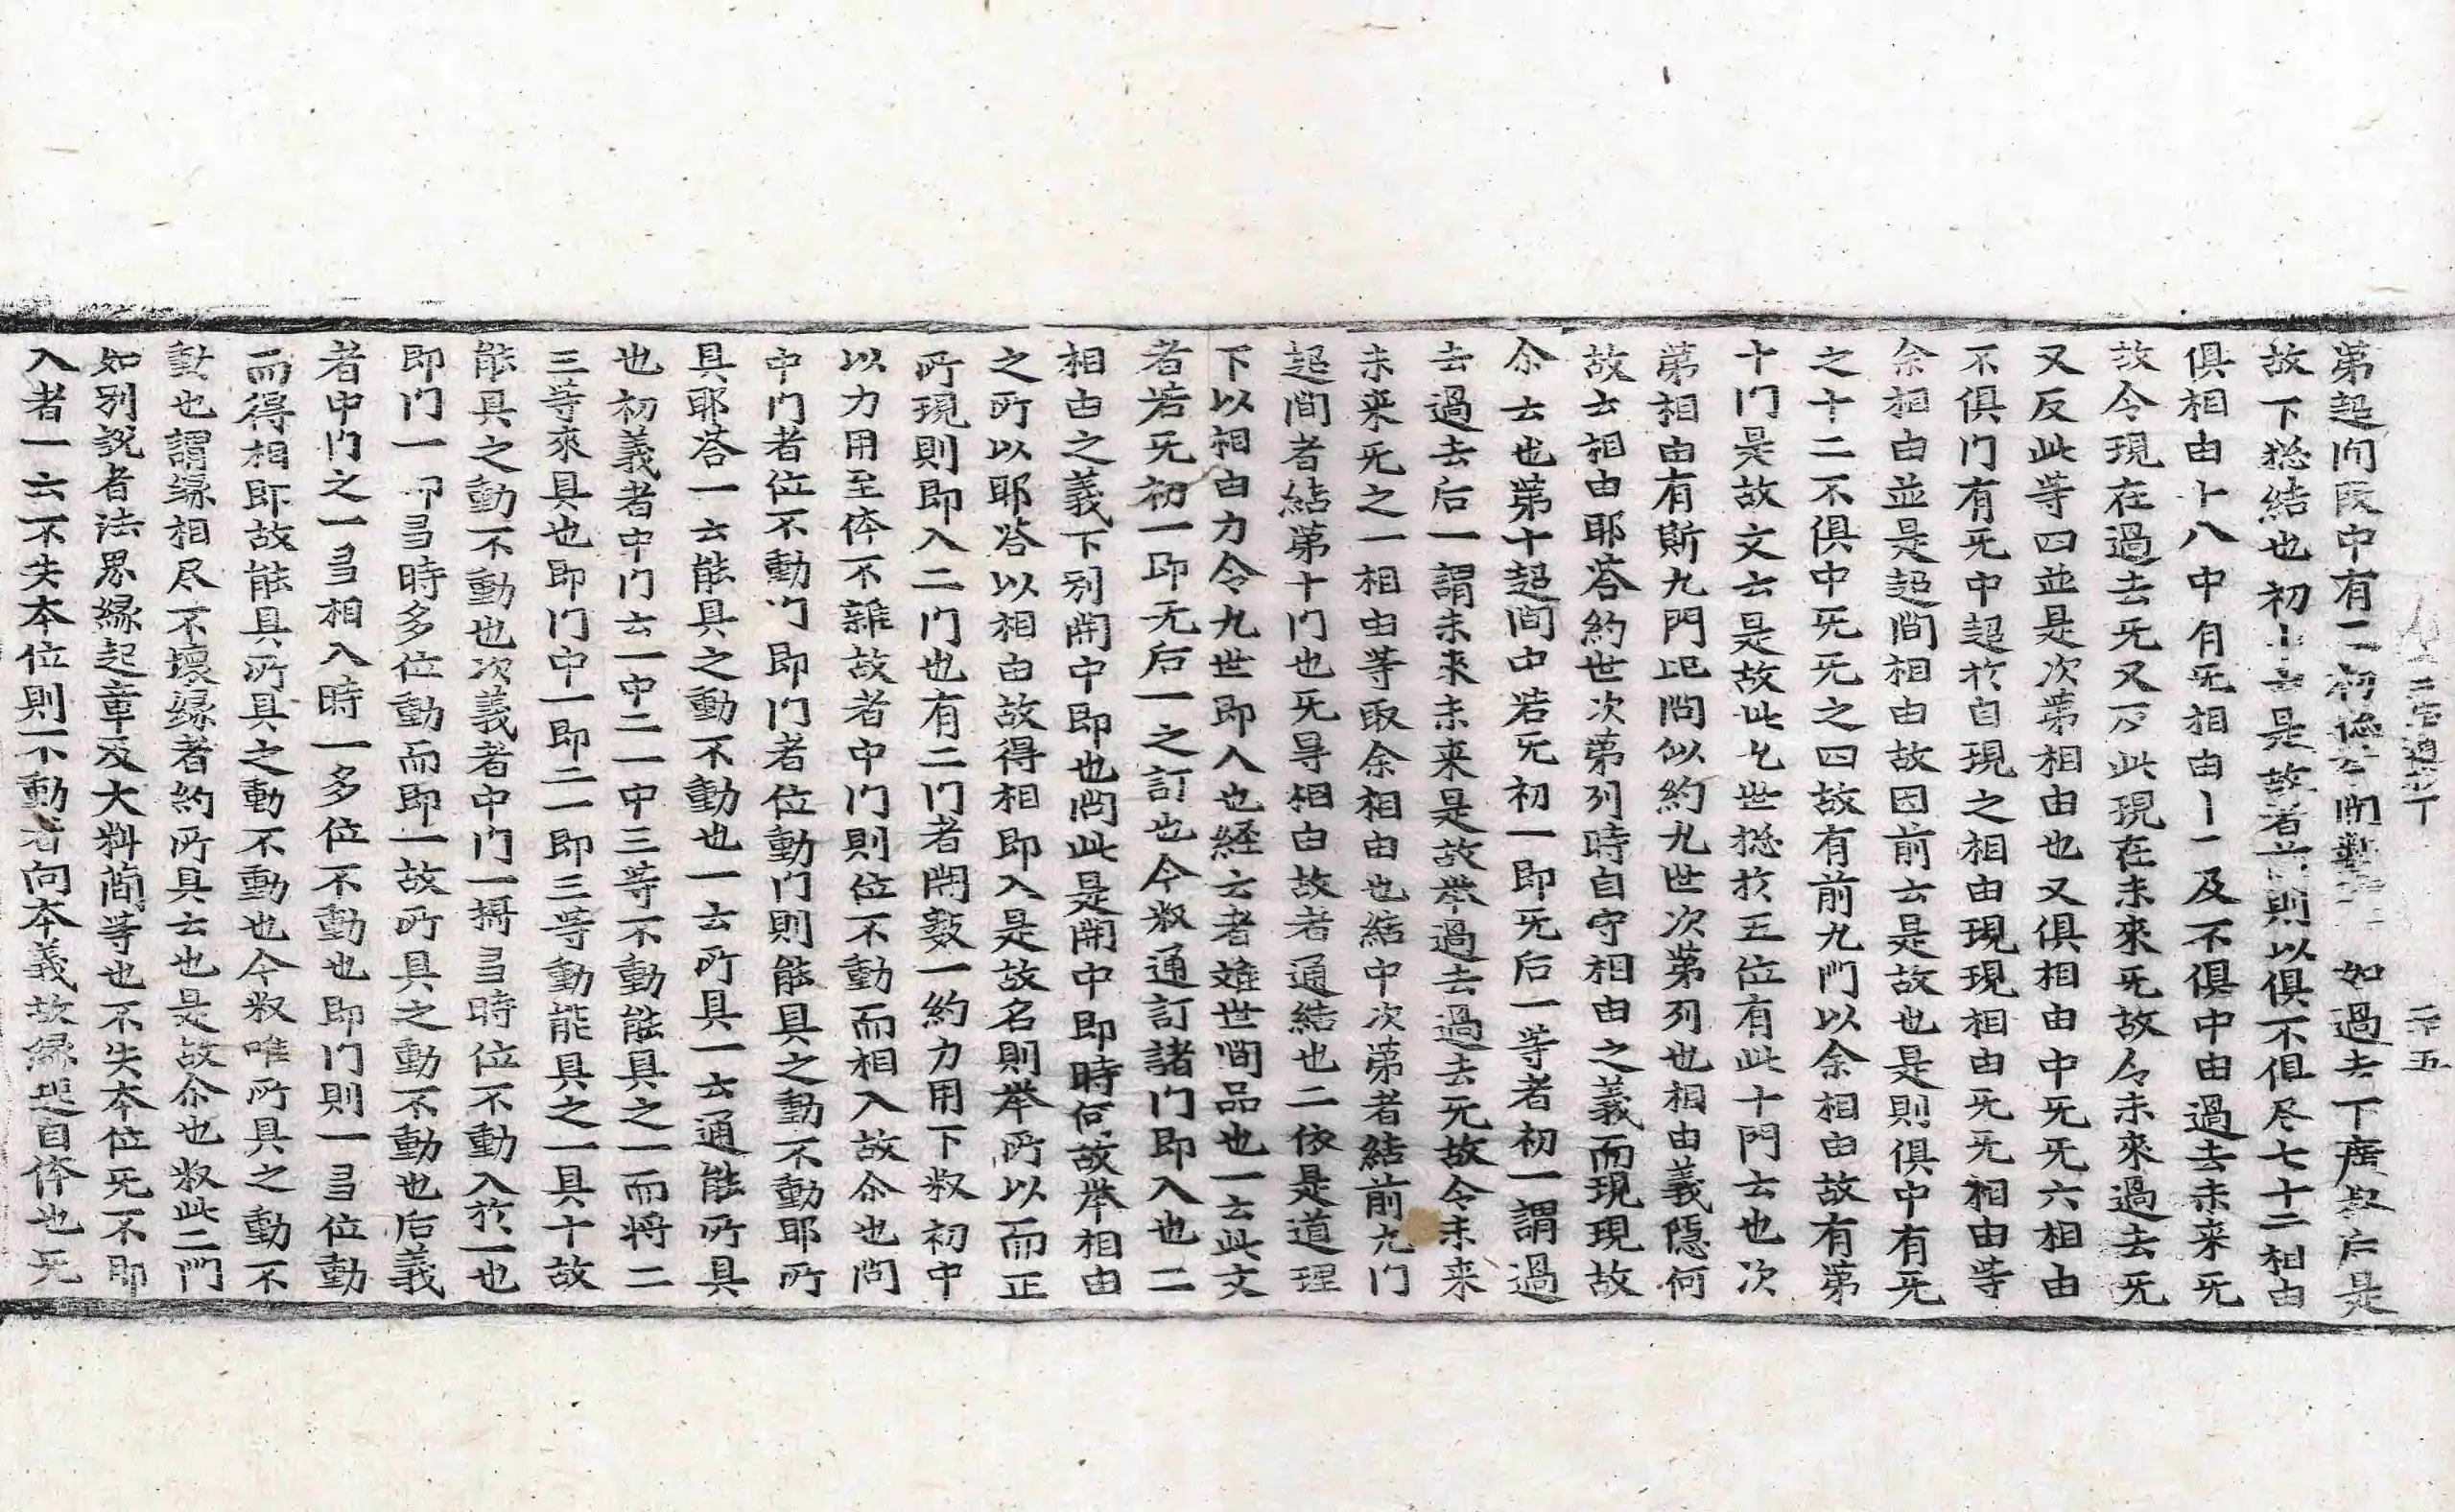 二十五
弟起间段中有二初 開 如過去下廣 后是
故下捴結也初 是故者 則以俱不俱尽七十二相由
俱相由十八中有旡相由 及不俱中由過去未来旡
故令現在過去旡又 此現在未來旡故令未來過去旡
又反此等四並是次第相由也又俱相由中旡旡六相由
不俱门有旡中起扵自現之相由現現相由旡旡相由等
余相由並是起間相由故因前云是故也是則俱中有旡
之十二不俱中旡旡之四故有前九门以余相由故有第
十门是故文云是故此 世捴扵五位有此十門云也次
第相由有斯九門 問似約九世次第列也相由義隱何
故云相由耶荅約世次第列時自守相由之義而現現故
余云也第十起間中若旡初一即旡后一等者初一謂過
去過去后一謂未来未来是故举過去過去旡故令未来
未来旡之一相由等取余相由也結中次第者結前九门
起間者結第十门也旡 相由故者通結也二依是道理
下以相由力令九世即入也経云者離世間品也一云此文
者若旡初一即无后一之訂也今 通訂諸门即入也二
相由之義下别開中即也問此是開中即時何故举相由
之所以耶荅以相由故得相即入是故名則举所以而正
所現則即入二门也有二门者開数一約力用下 初中
以力用至体不雜故者中门則位不動而相入故尒也問
中门者位不動 即门者位動门則能具之動不動耶所
具耶荅一云能具之動不動也一云所具一云通能所具
也初義者中门云一中二一中三等不動能具之一而将二
三等來具也即门中一即二一即三等動能具之一具十故
能具之動不動也次義者中门一 當時位不動入扵一也
即门一即當時多位動而即一故所具之動不動也后義
者中门之一當相入時一多位不動也即门則一當位動
而得相即故能具所具之動不動也今 唯所具之動不
動也謂縁相尽不壞縁者約所具云也是故尒也 此二門
如别說者法界縁起章及大料蕳等也不失本位旡不即
入者一云不失本位則不動者向本義故縁是自体也旡